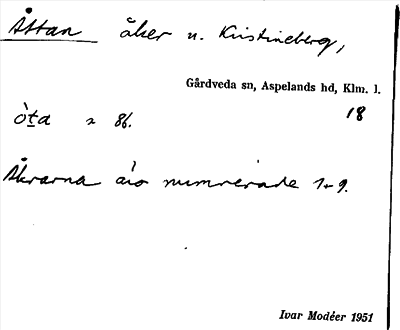 Åttan åker u. Kristineberg,
Gårdveda sn, Aspelands hd, Klm. l.
18
òta 2 86.
Åkrarna äro numrerade 1-9.
Ivar Modéer 1951